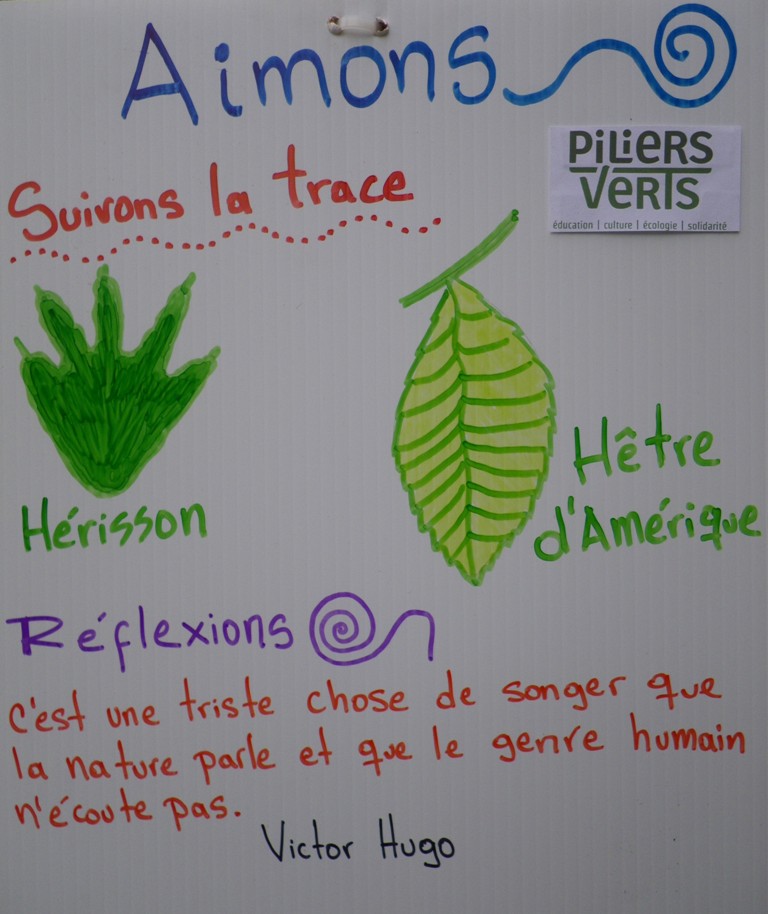 Aimons
PiLiERS
VERTS
éducation | culture | écologie | solidarité
Suivons la trace
Hérisson
Hêtre
d'Amérique
Réflexions
C'est une triste chose de songer que
la nature parle et que le genre humain
n'écoute pas.
Victor Hugo